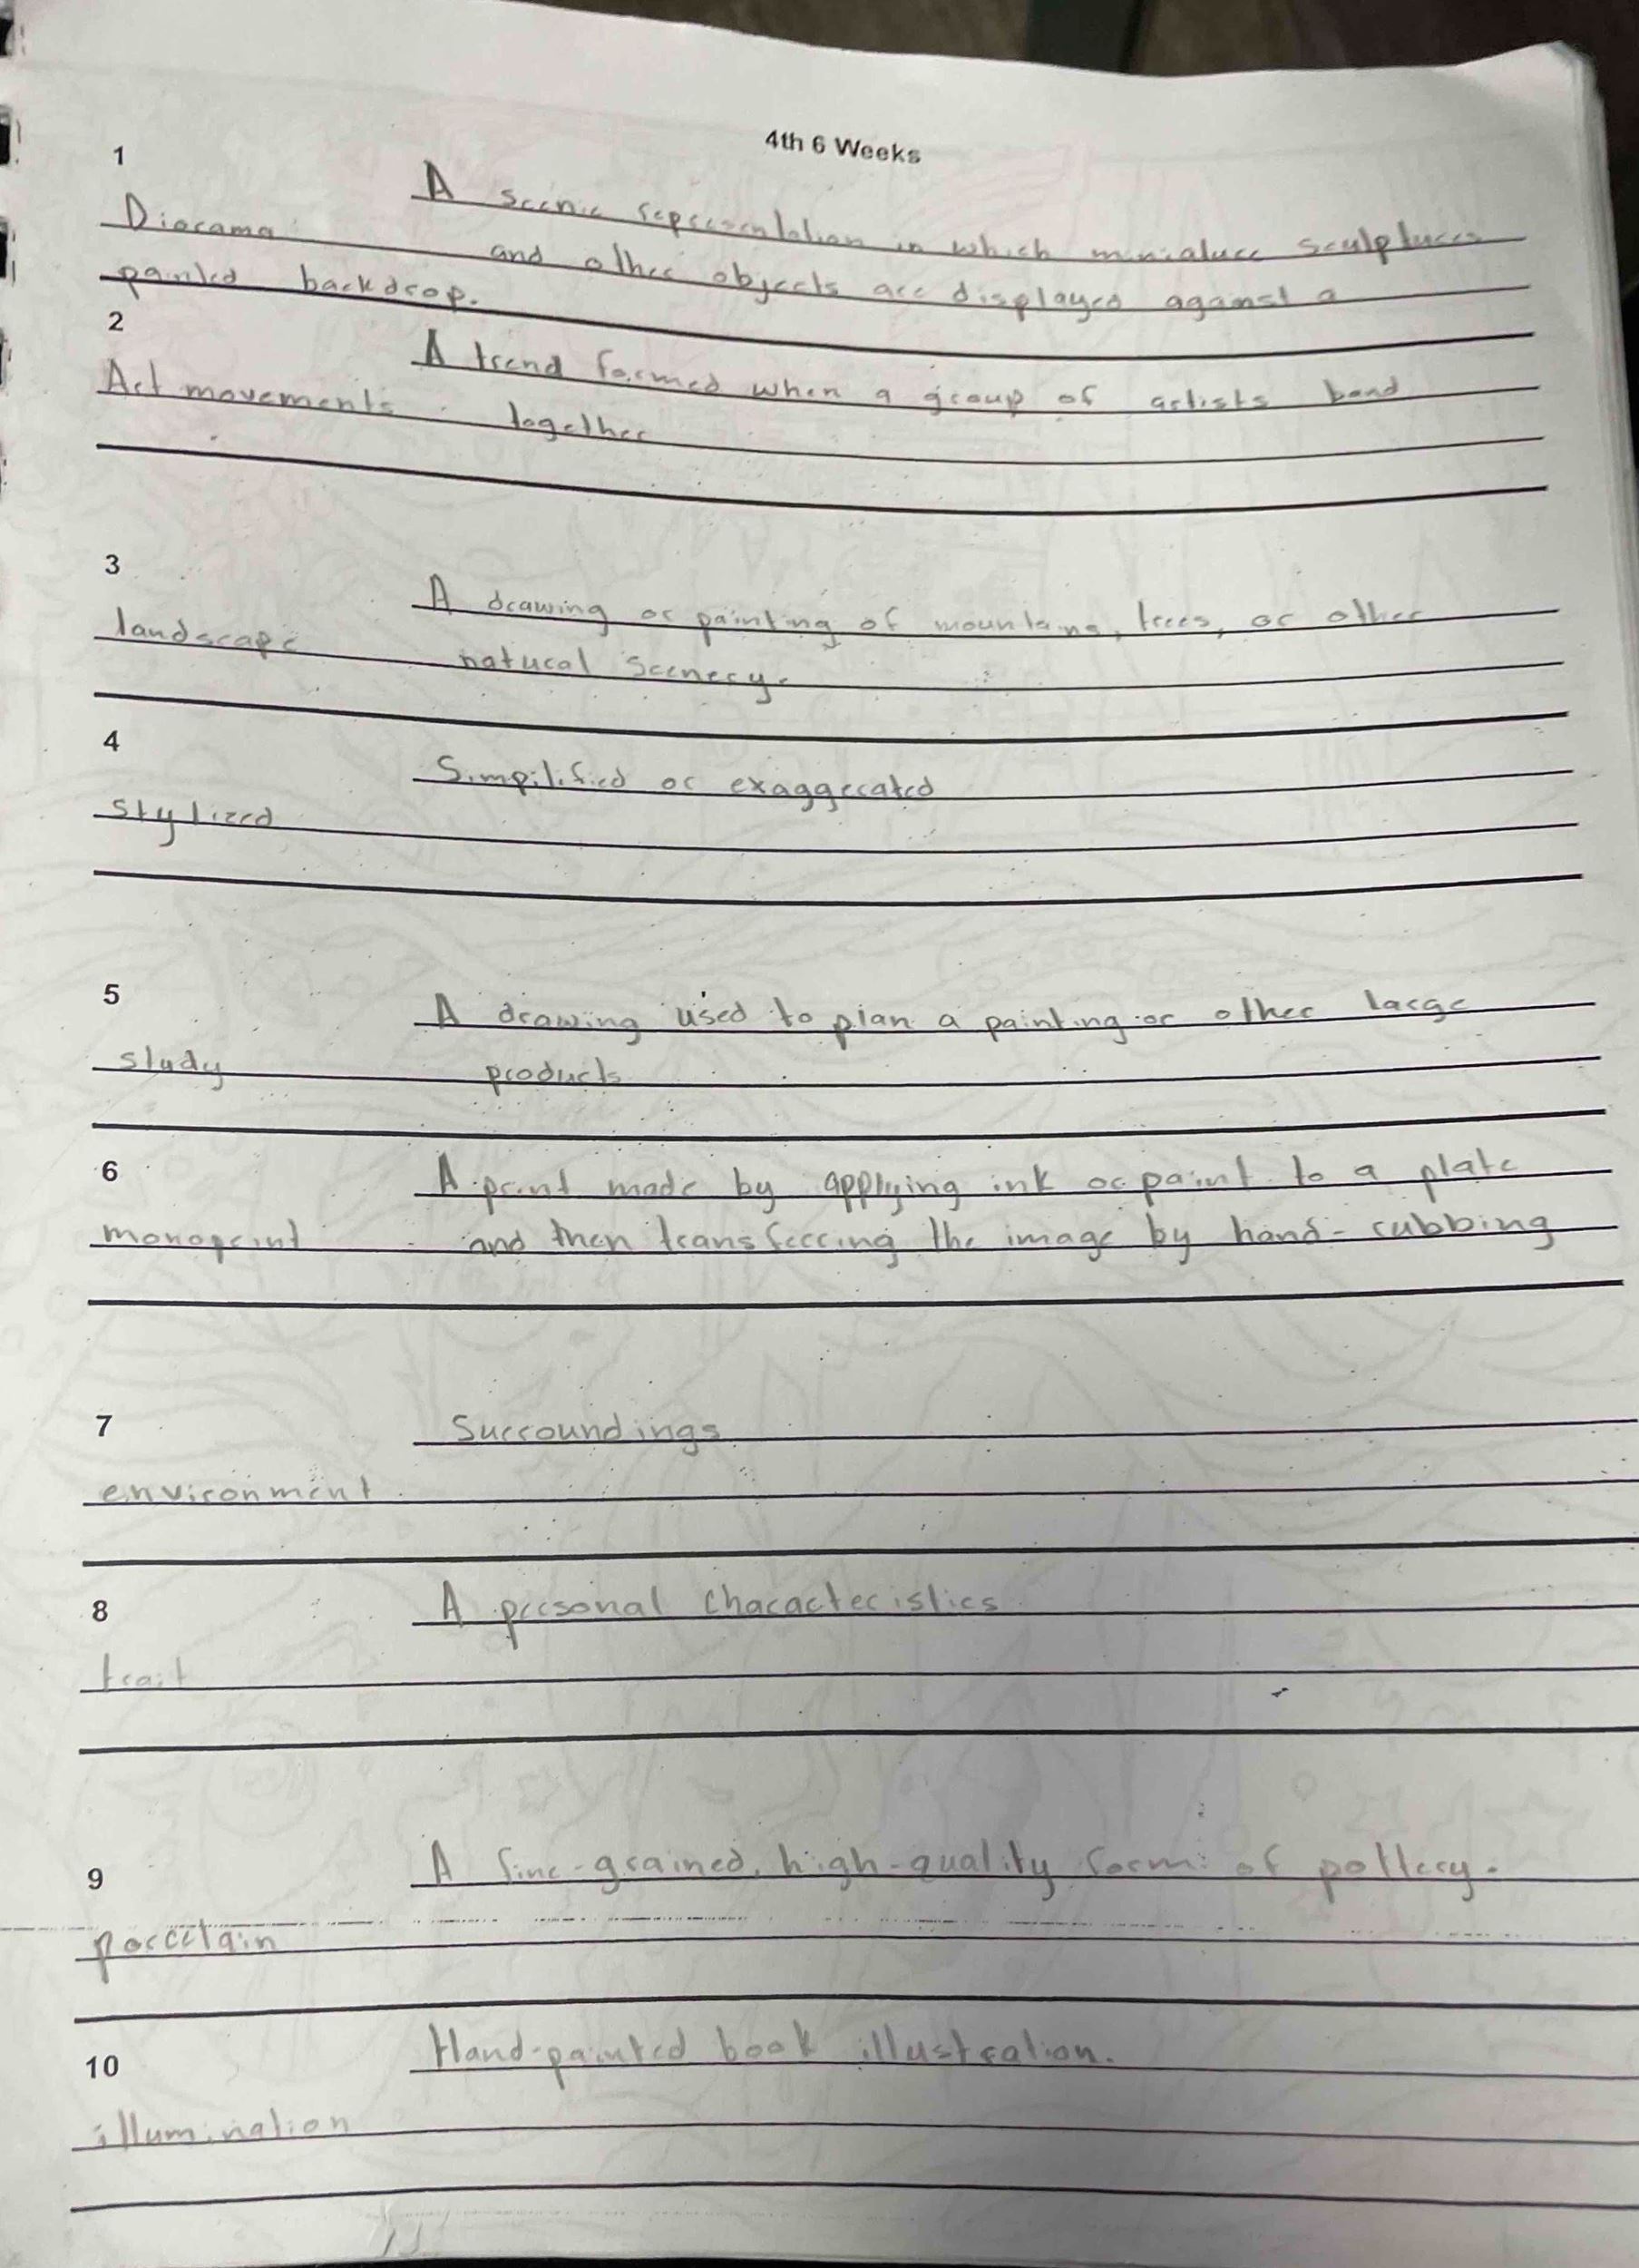 4th 6 Weeks
1
A scenic representation in which miniature sculptures
Diorama and other objects are displayed against a
painted backdrop.
2
A trend formed when a group of artists band
Art movements together
3
A drawing or painting of mountains, trees, or other
landscape natural scenery.
4
Simpilified or exaggerated
stylized
5
A drawing used to plan a painting or other large
study products
6
A print made by applying ink or paint to a plate
monoprint and then transferring the image by hand-rubbing
7
Surroundings
environment
8
A personal characteristics
trait
9
A fine-grained, high-quality form of pottery.
porcelain
10
Hand-painted book illustration.
illumination